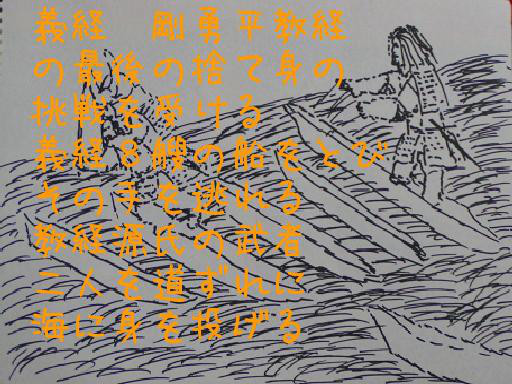 義経　剛勇平教経
の最後の捨て身の
挑戦を受ける
義経８艘の船をとび
その手を逃れる
教経源氏の武者
二人を道ずれに
海に身を投げる